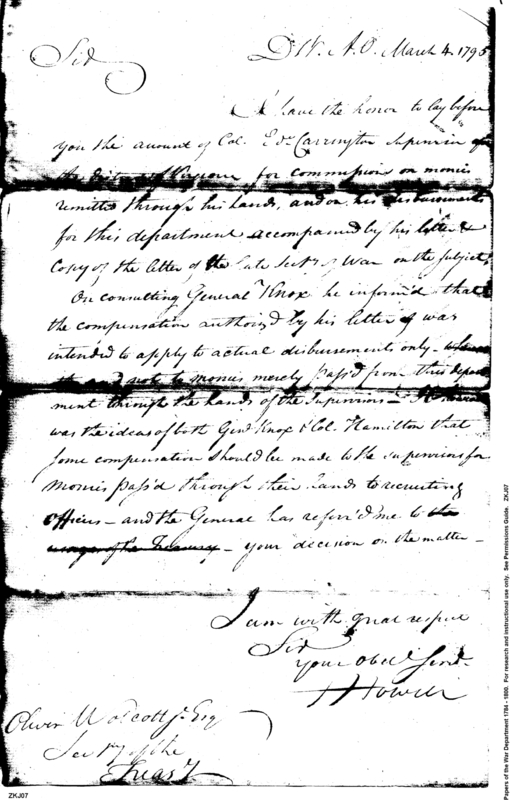 D W. A. O. March 4 1795
Sir
I have the honor to lay before
you the amount of Col. Edw Carrington Supervisor of
the District of Virginia for commissions on monies
remitted through his hands, and on his disbursements
for this department accompanied by his letter &
Copy of the letter of the late Secty of War on the subject,
On consulting General Knox he inform'd that
the compensation authoriz'd by his letter of was
intended to apply to actual disbursements only -
and not to monies merely pass'd from this depart
ment through the hands of the Supervisors -
was the ideas of both Genl Knox & Col. Hamilton that
some compensation should be made to the supervisors for
Monies pass'd through their hands to recruiting
Officers - and the General has referr'd me to the
of the Treasury - your decision on the matter -
I am with great respect
Sir
Your Obed Servt.
J Howell
Oliver Wolcott Jr. Esq
Secty of the
Treasy
ZKJ07
Papers of the War Department 1784 - 1800. For research and instructional use only. See Permissions Guide. ZKJ07